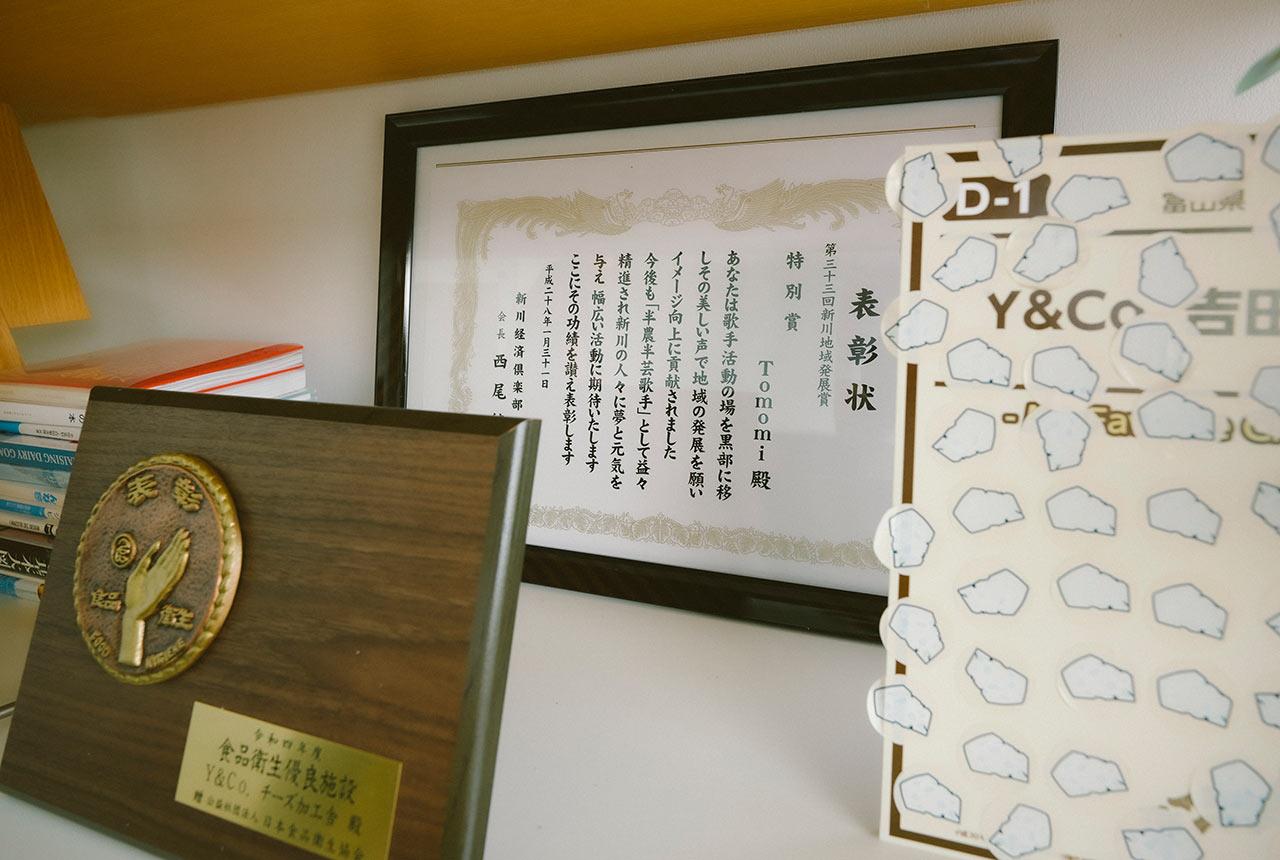 表彰状
第三十三回新川地域発展賞
特別賞
Tomomi 殿
あなたは歌手活動の場を黒部に移
しその美しい声で地域の発展を願い
イメージ向上に貢献されました
今後も「半農半芸歌手」として益々
精進され新川の人々に夢と元気を
与え 幅広い活動に期待いたします
ここにその功績を讃え表彰します
平成二十八年一月三十一日
新川経済倶楽部
会長 西尾
表彰
食品 衛生
FOOD HYGIENE
令和四年度
食品衛生優良施設
Y&Co. チーズ加工舎 殿
贈 公益社団法人 日本食品衛生協会
D-1
富山県
Y&Co. 吉田
RAISING DAIRY GOA